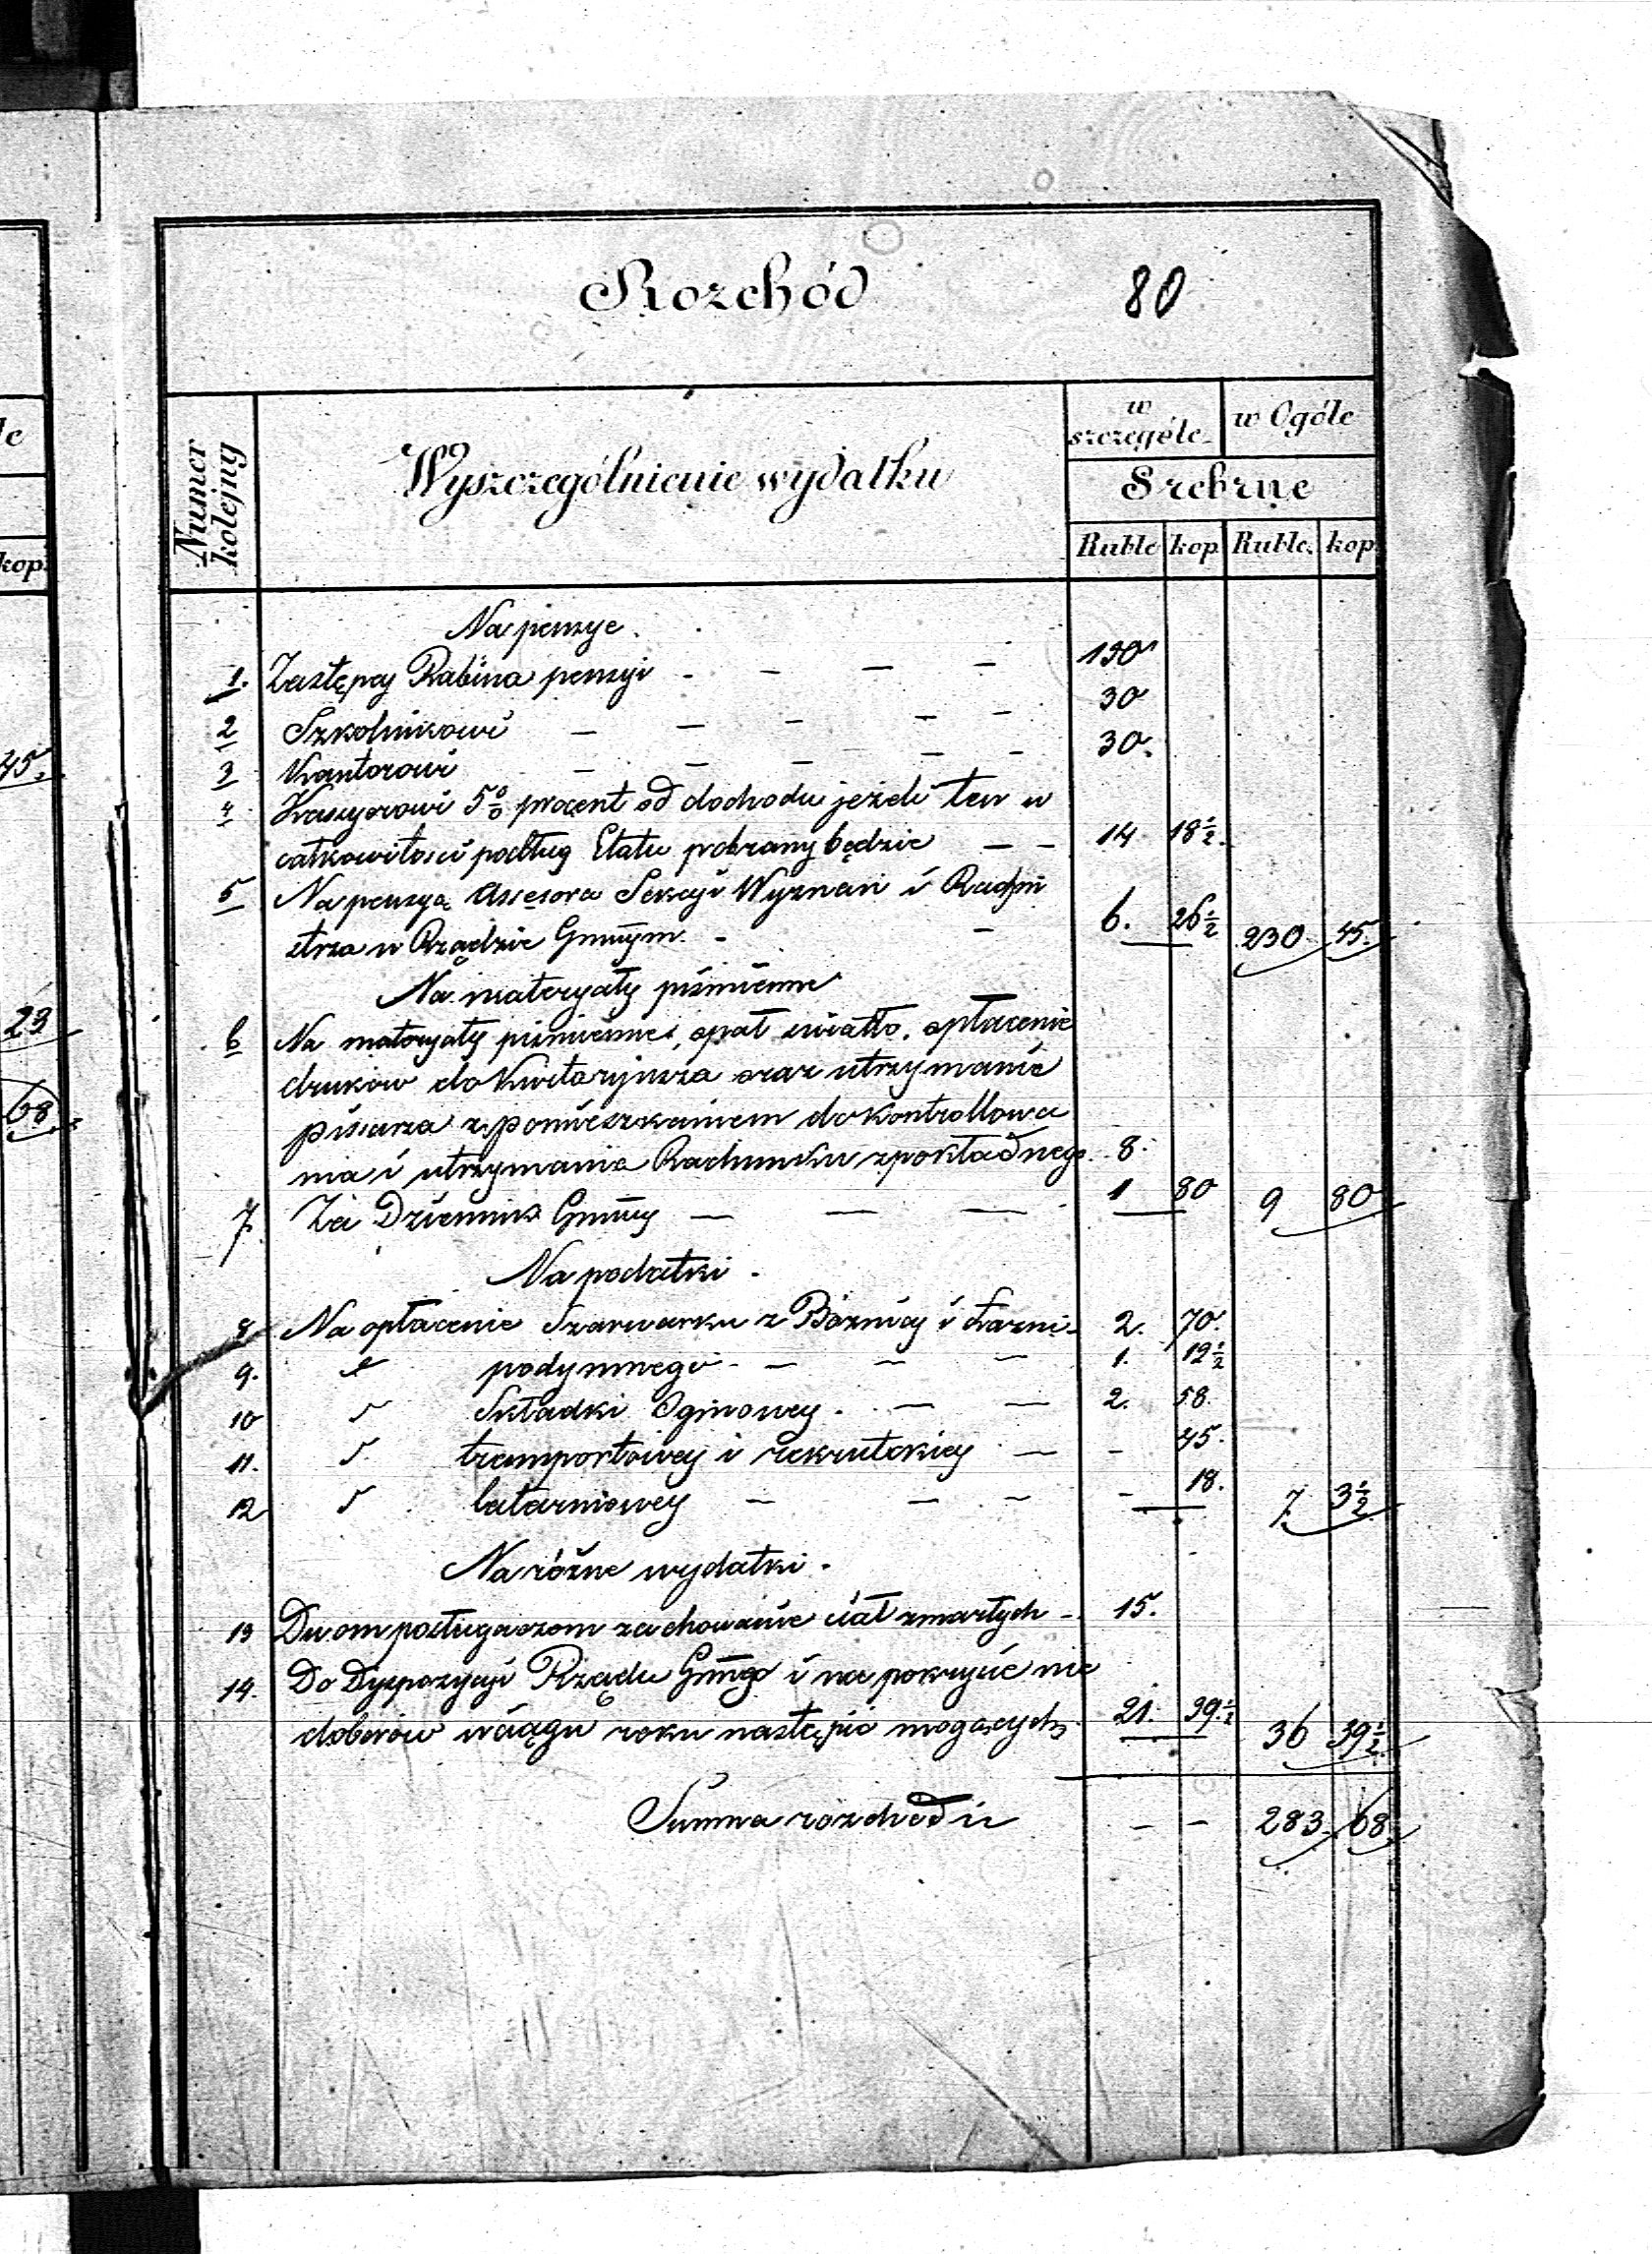 le
kop.
45.
23
68
Rozchód 80
Numer kolejny
Wyszczególnienie wydatku
w szczególe
w Ogóle
Srebrne
Ruble kop. Ruble. kop
Na pensye.
1. Zastępcy Rabina pensyi - — — — 150
2 Szkolnikowi — — — — — 30
3 Kantorowi — — — — — 30.
4 Kasyerowi 5% procent od dochodu jeżeli ten w
całkowitości podług Etatu pobrany będzie — — 14 18½.
5 Na pensyą Assesora Sekcyi Wyznań i Rachmi
strza w Rządzie Gmnym. - — 6. 26½ 230 45.
Na materyały piśmienne
6 Na materyały piśmienne, opał światło, opłacenie
druków do Kwitaryusza oraz utrzymanie
pisarza z pomieszkaniem do kontrollowa
nia i utrzymania Rachunku z pokładnego 8.
7. Za Dziennik Gmny — — — 1 80 9 80
Na podatki.
8 Na opłacenie Szarwarku z Bóżnicy i Łazni - 2. 70.
9. " podymnego - — — — 1. 12½
10 " Składki Ogniowey. - — — 2. 58.
11. " transportowey i rekrutskiey — - 45.
12 " latarniowey — — — - 18. 7. 3½
Na różne wydatki.
13 Dwom posługaczom za chowanie ciał zmarłych - 15.
14. Do Dyspozycyi Rządu Gmngo i na pokrycie nie
doborów w ciągu roku nastąpić mogących 21. 39½ 36 39½
Summa rozchodu - - 283 68